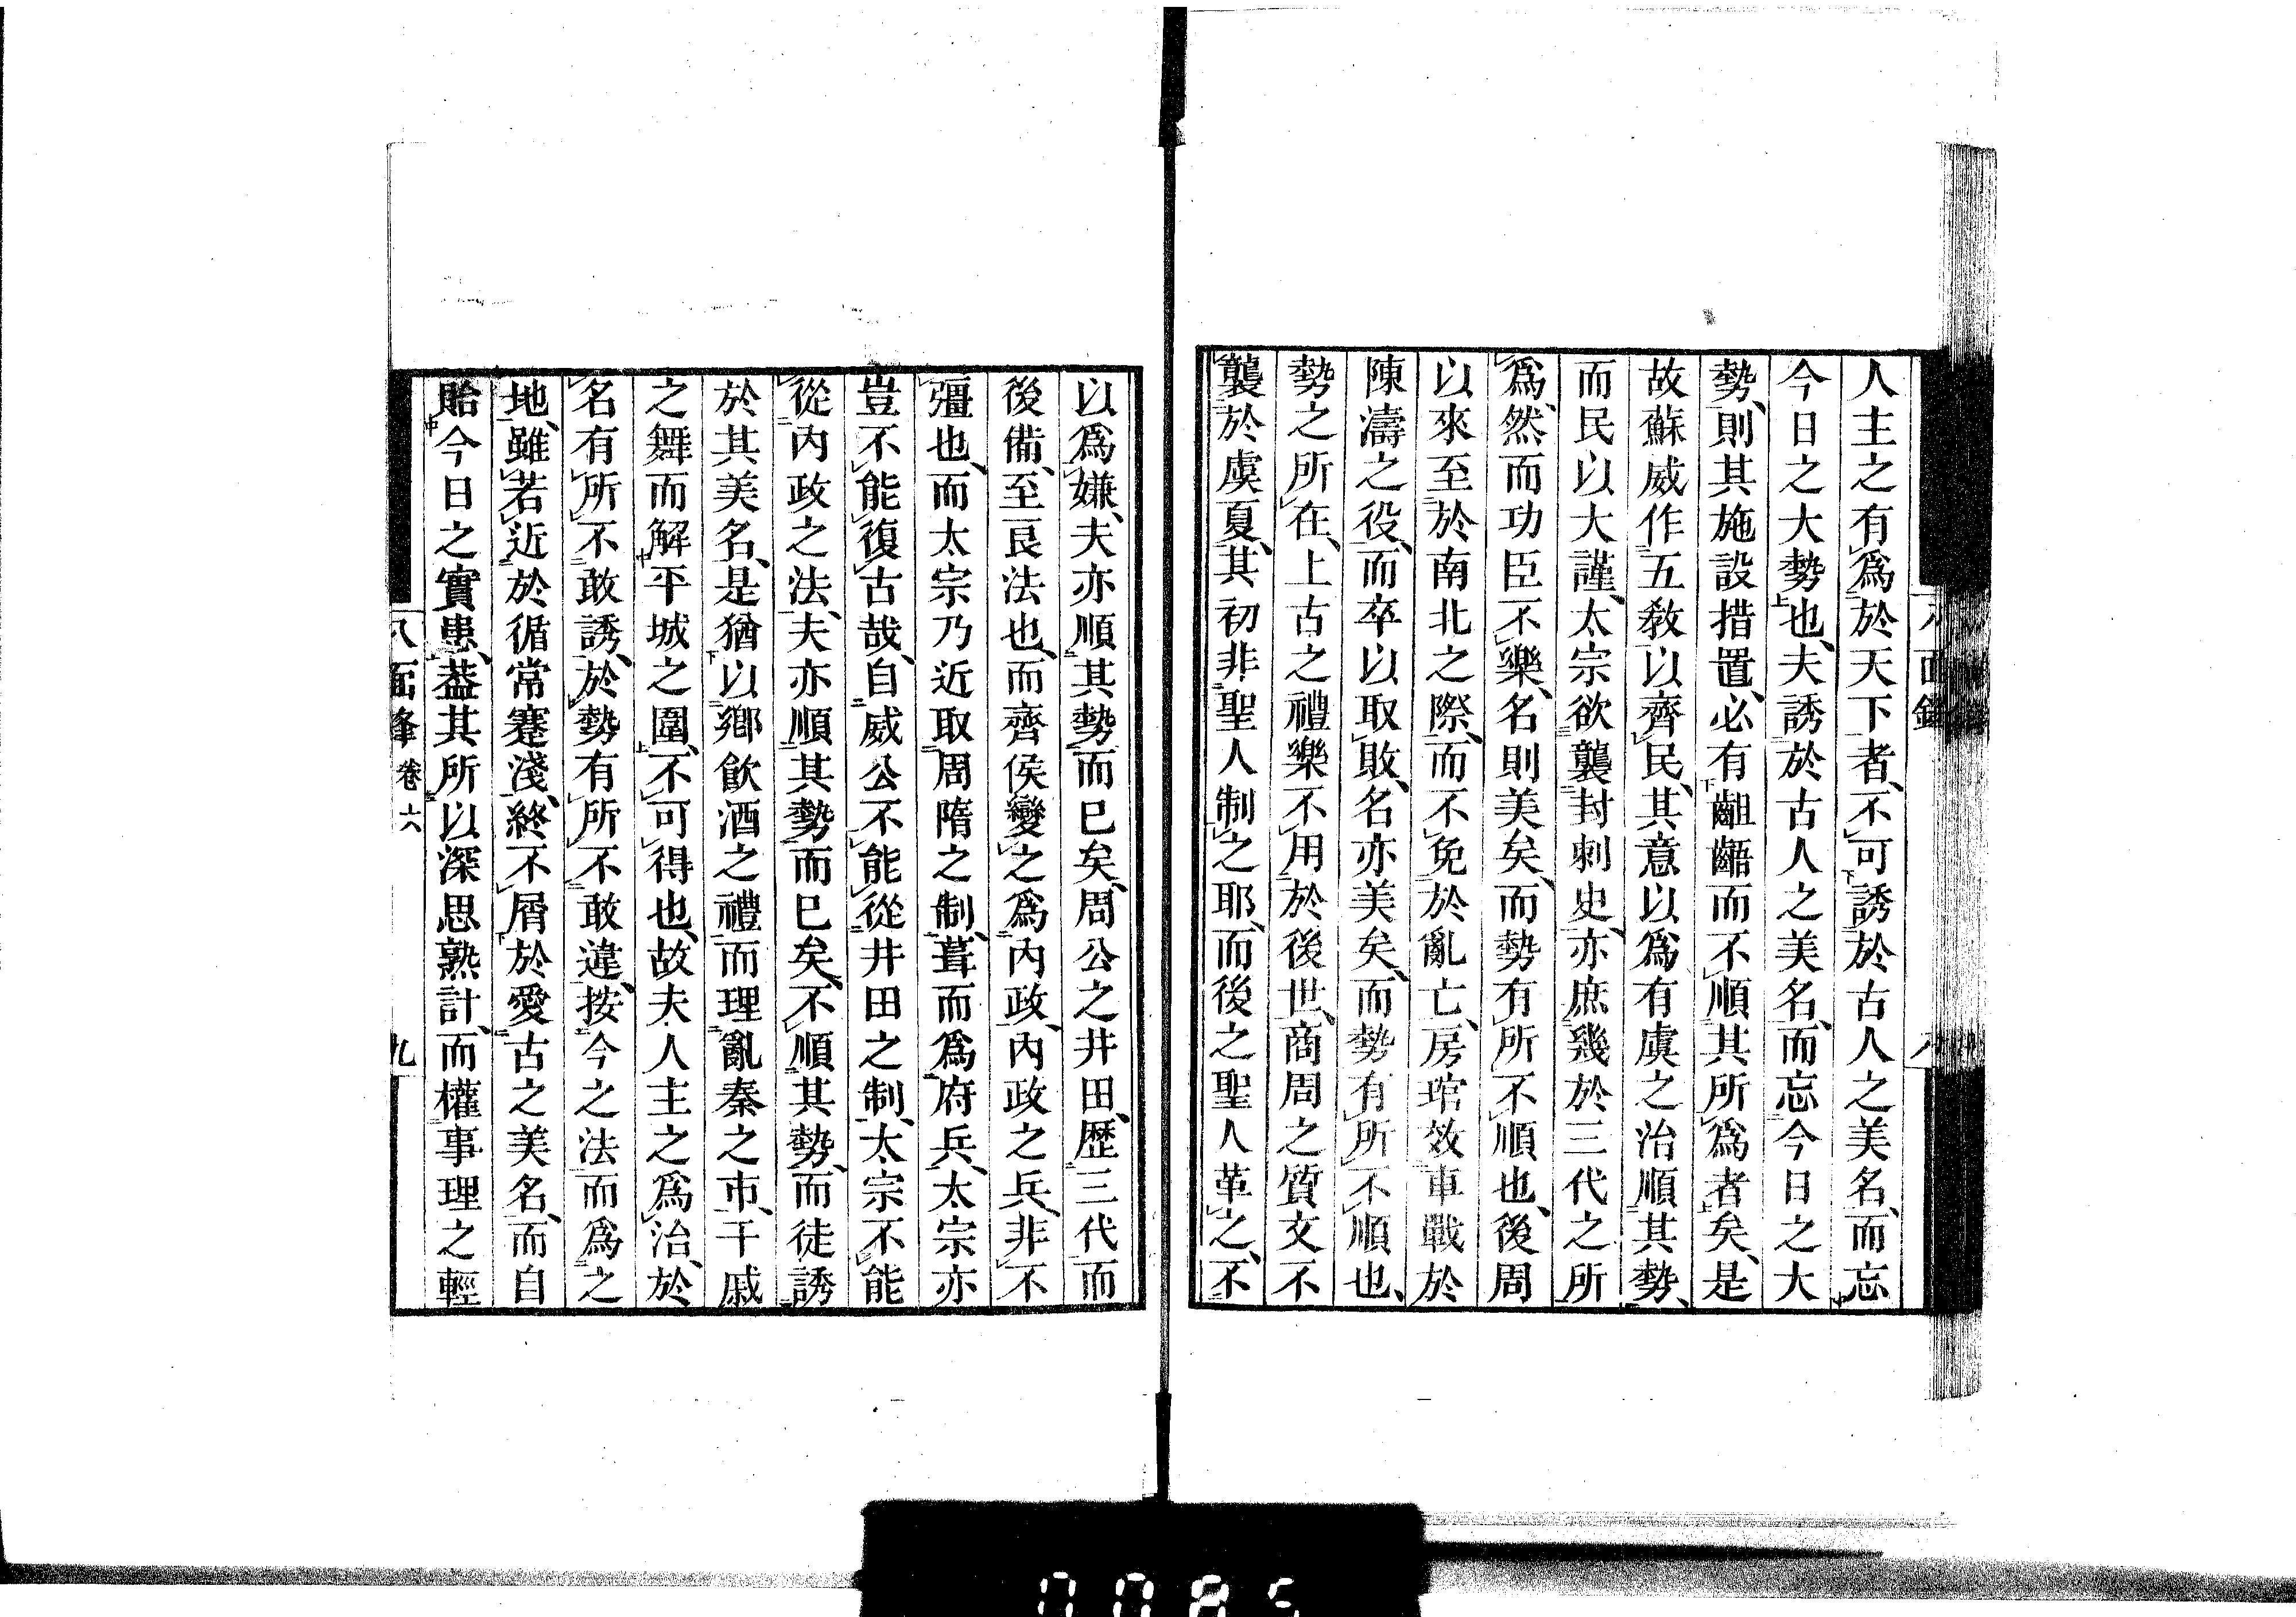 人主之有爲於天下者、不可誘於古人之美名、而忘
今日之大勢也、夫誘於古人之美名、而忘今日之大
勢、則其施設措置、必有齟齬而不順其所爲者矣、是
故蘇威作五敎以齊民、其意以爲有虞之治順其勢、
而民以大謹、太宗欲襲封刺史、亦庶幾於三代之所
爲、然而功臣不樂、名則美矣、而勢有所不順也、後周
以來至於南北之際、而不免於亂亡、房琯效車戰於
陳濤之役、而卒以取敗、名亦美矣、而勢有所不順也、
勢之所在、上古之禮樂不用於後世、商周之質文不
襲於虞夏、其初非聖人制之耶、而後之聖人革之、不
以爲嫌、夫亦順其勢而已矣、周公之井田、歷三代而
後備、至良法也、而齊侯變之爲内政、内政之兵、非不
彊也、而太宗乃近取周隋之制、葺而爲府兵、太宗亦
豈不能復古哉、自威公不能從井田之制、太宗不能
從内政之法、夫亦順其勢而已矣、不順其勢、而徒誘
於其美名、是猶以鄉飮酒之禮而理亂秦之市、干戚
之舞而解平城之圍、不可得也、故夫人主之爲治、於
名有所不敢誘、於勢有所不敢違、按今之法而爲之
地、雖若近於循常蹇淺、終不屑於愛古之美名、而自
貽今日之實患、葢其所以深思熟計、而權事理之輕
八面峰 卷六 九
008